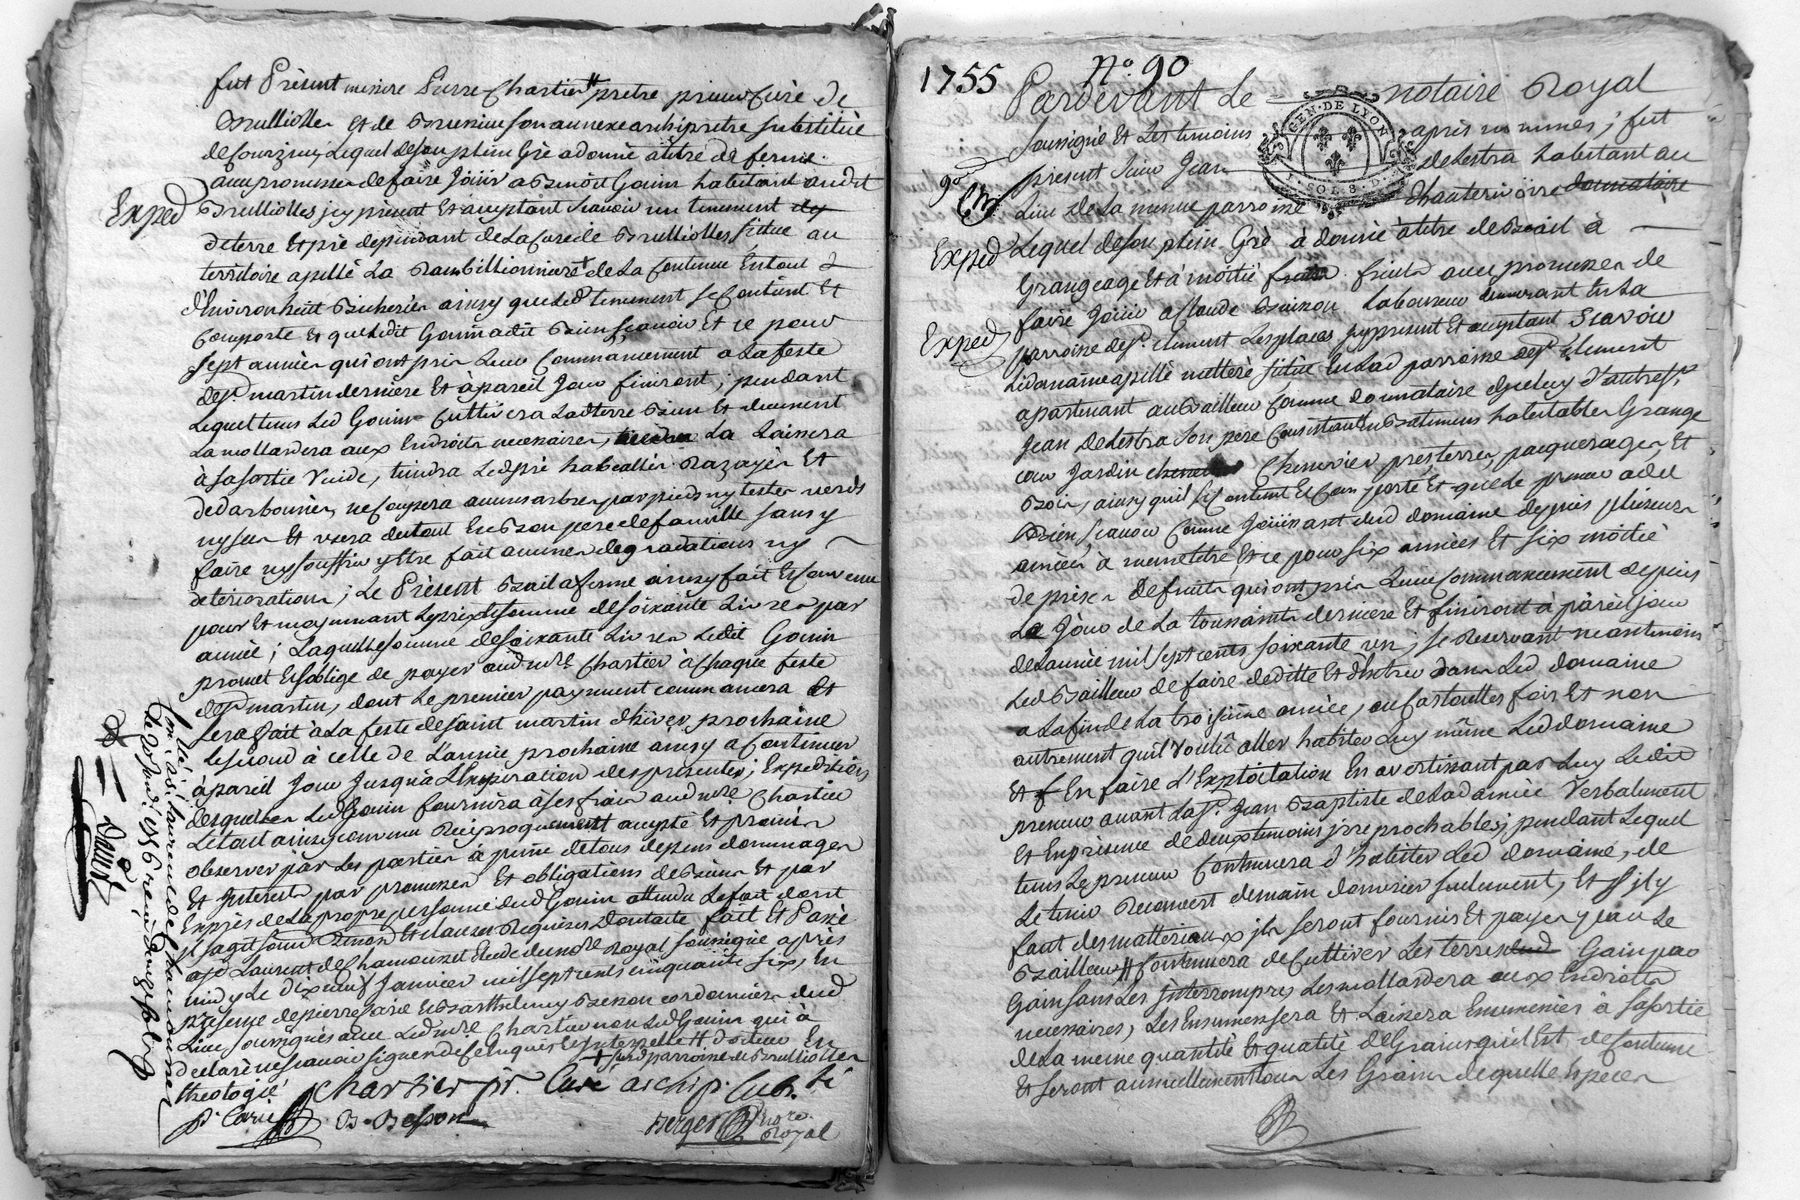 fut Présent messire Pierre Chartier # pretre prieur Curé de
Brulliolles Et de Brussieu son annexe archipretre substitué
de Courzieu, Lequel de son plein Gré a donné a titre de ferme
avec promesses de faire Joüir a Benoit Gouin habitant audit
Brulliolles, jcy présent Et acceptant Scavoir un tenement
de terre Et pré dépendant de la Cure de Brulliolles Situé au
territoire apellé La Rambillionniere + de la Contenue En tout
d'Environ huit Bicherées ainsy que led tenement se Contient Et
Comporte Et que Ledit Gouin a dit Bien Scavoir Et ce pour
Sept années qui ont pris Leur Commancement a La feste
de St martin derniere Et à pareil Jour finiront; pendant
Lequel tems Led Gouin Cultivera Lad terre Bien Et duement
La mollardera aux Endroits necessaires, La Laissera
à Sa Sortie Vuide, tiendra Led pré Razayé Et
ne Coupera aucuns arbres par pieds ny testes verds
ny secs Et usera du tout En Bon pere de famille sans y
faire ny souffrir y Etre fait aucunes degradations ny
deteriorations; Le Présent Bail a ferme ainsy fait Et Convenu
pour Et moyennant Le prix Et somme de soixante Livres par
année; Laquelle somme de soixante Livres Ledit Gouin
promet Et s'oblige de payer aud mre Chartier à Chaque feste
de St martin, dont Le premier payement commancera Et
sera fait à La feste de saint martin d'hiver prochaine
Le second à celle de L'année prochaine ainsy a Continuer
à pareil Jour Jusqu'à L'Expiration des presentes; Expeditions
desquelles Led Gouin fournira à ses frais aud mre Chartier
Le tout ainsy convenu Reciproquement accepté Et promis
observer par Les parties à peine de tous depens dommages
Et Interets par promesses Et obligations de Biens Et par
Exprès de La propre personne dud Gouin attendu Le fait dont
jl s'agit soumissions Et clauses Requises dont acte fait Et Passé
a St Laurent de Chamousset Etude du nore Royal soussigné après
midy Le dix neuf Janvier mil sept cents cinquante six, En
présence de pierre Carie Et Barthelemy Besson cordonniers dud
Lieu soussignés avec Led mre Chartier non Led Gouin qui à
declaré ne scavoir signer de ce Enquis Et Interpellé # docteur En
theologie + sur d parroisse de Brulliolles
Chartier pr. Curé archip. subst.
P. Carie B. Besson Berger nore Royal
Exped
Conllé à St Laurent de Chamousset
1755 No. 90
Pardevant Le notaire Royal
Soussigné Et Les temoins après nommés; fut
present Sieur Jean de Lestra habitant au
Lieu de La meme parroisse d'hauterivoire donnataire
Exped
Lequel de son plein Gré à donné à titre de Bail à
Grangeage Et à moitié fruits avec promesses de
faire Joüir a Claude Buisson Laboureur demeurant En La
Exped
parroisse de St. Clement Les places jcy present Et acceptant Scavoir
Le domaine apellé mettere situé En Lad parroisse de St Clement
apartenant au Bailleur Comme donnataire d'
Jean de Lestra Son pere Consistant En Batiments habitables Grange
Cour Jardin Chenevier prés terres, paquerages, Et
Bois, ainsy qu'il se Contient Et Comporte Et que Le preneur a dit
Bien Scavoir Comme Joüissant dud domaine depuis plusieurs
années à meme titre Et ce pour six années Et six moitié
de prises de fruits qui ont pris Leur Commancement depuis
Le Jour de La toussaints derniere Et finiront à pareil jour
de L'année mil sept cents soixante un; se Reservant néantmoins
Led Bailleur de faire deditte Et d'Entrer dans Led domaine
a La fin de La troisième année, au Cas touttes fois Et non
autrement qu'il Voulû aller habiter Luy même Led domaine
Et En faire L'Exploitation En avertissant par Luy Ledit
preneur avant La St. Jean Baptiste de Lad année Verbalement
Et En présence de deux temoins jrreprochables; pendant Lequel
tems Le preneur Continuera d'habiter Led domaine, de
Le tenir Recouvert de main d'ouvrier seulement, Et s'jl y
faut des matteriaux jls seront fournis Et payés par Le
Bailleur # Continuera de Cultiver Les terres Gain par
Gain sans Les Interrompre, Les mollardera aux Endroits
necessaires, Les Ensemensera Et Laissera Ensemencés à sa sortie
de La meme quantité Et qualité de Grains qu'il Est de Coutume
Et seront annuellement tous Les Grains de quelle Espece